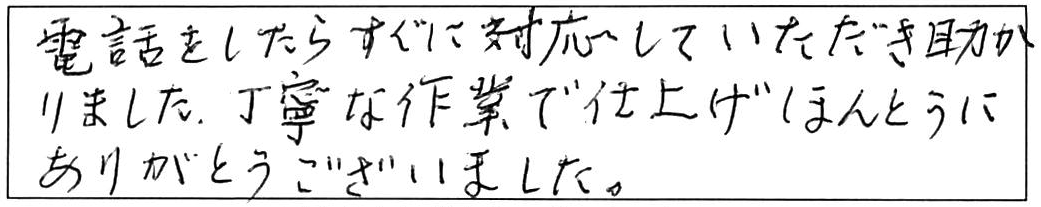 電話をしたらすぐに対応していただき助か
りました.丁寧な作業で仕上げほんとうに
ありがとうございました。